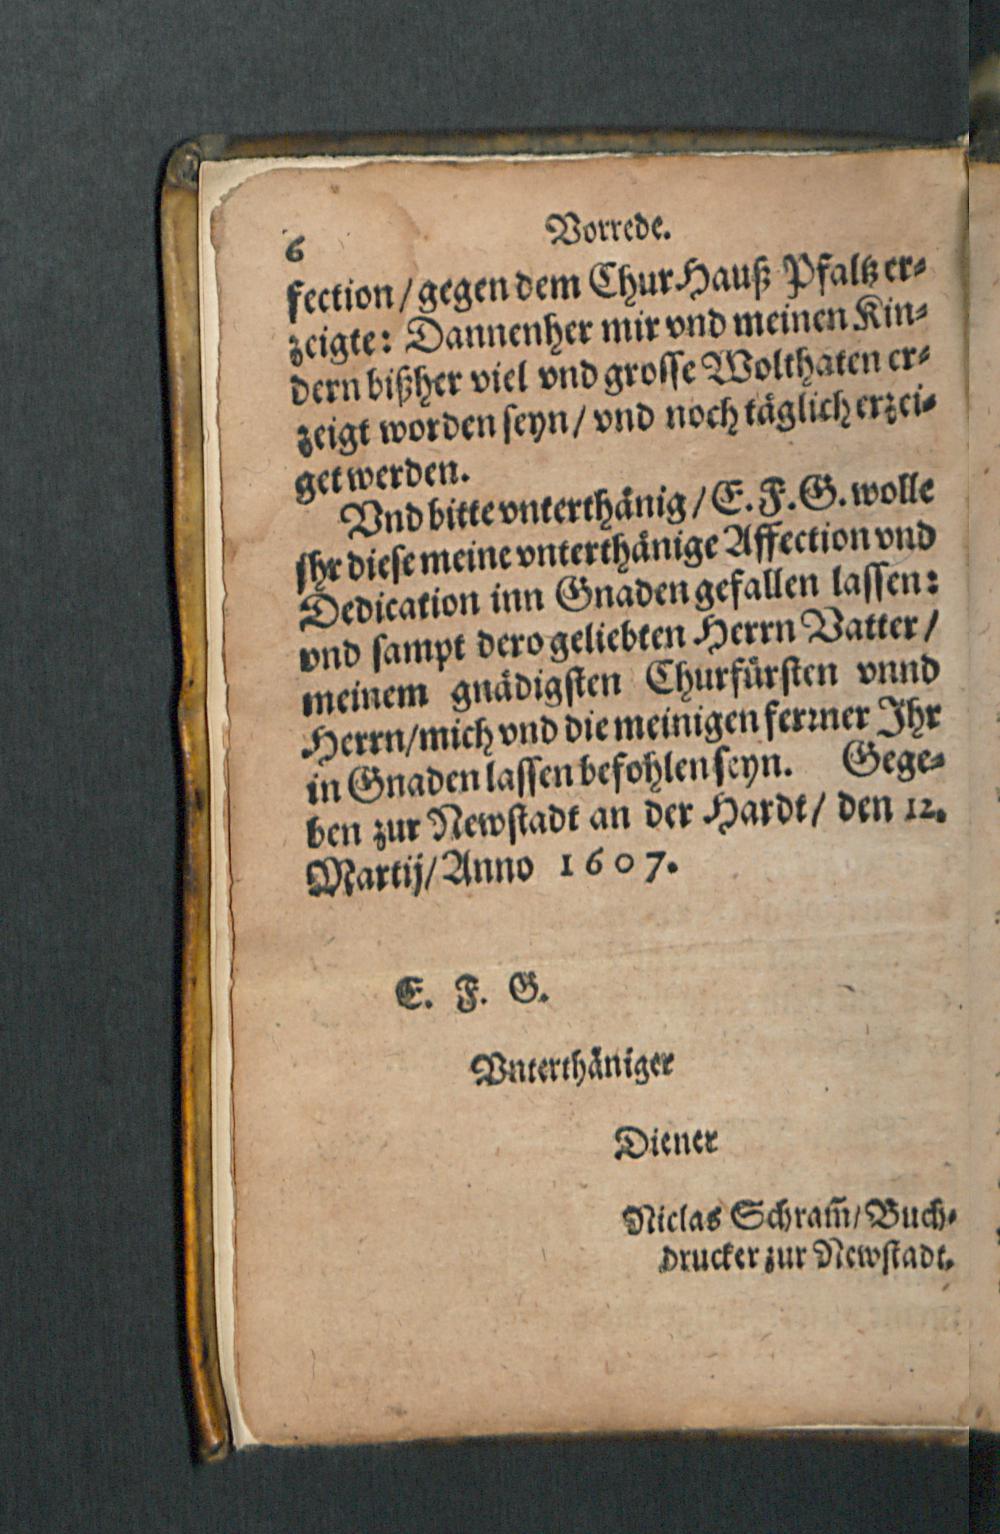 6 Vorrede.
fection/gegen dem Chur Hauß Pfaltz er-
zeigte: Dannenher mir vnd meinen Kin-
dern bißher viel vnd grosse Wolthaten er-
zeigt worden seyn/ vnd noch täglich erzei-
get werden.
Vnd bitte vnterthänig/E.F.G. wolle
jhr diese meine vnterthänige Affection vnd
Dedication inn Gnaden gefallen lassen:
vnd sampt dero geliebten Herrn Vatter/
meinem gnädigsten Churfürsten vnnd
Herrn/mich vnd die meinigen ferrner Jhr
in Gnaden lassen befohlen seyn. Gege-
ben zur Newstadt an der Hardt/ den 12.
Martij/Anno 1607.
E. F. G.
Vnterthäniger
Diener
Niclas Schram̃/Buch-
drucker zur Newstadt.